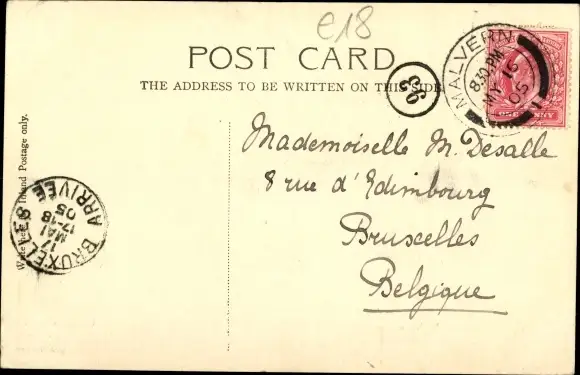 e18
POST CARD
THE ADDRESS TO BE WRITTEN ON THIS SIDE.
MALVERN
8.30 PM
MY 16
05
ONE PENNY
93
Mademoiselle M. Desalle
8 rue d'Edimbourg
Bruxelles
Belgique
Inland Postage only.
BRUXELLES
17
MAI
17-18
05
ARRIVÉE